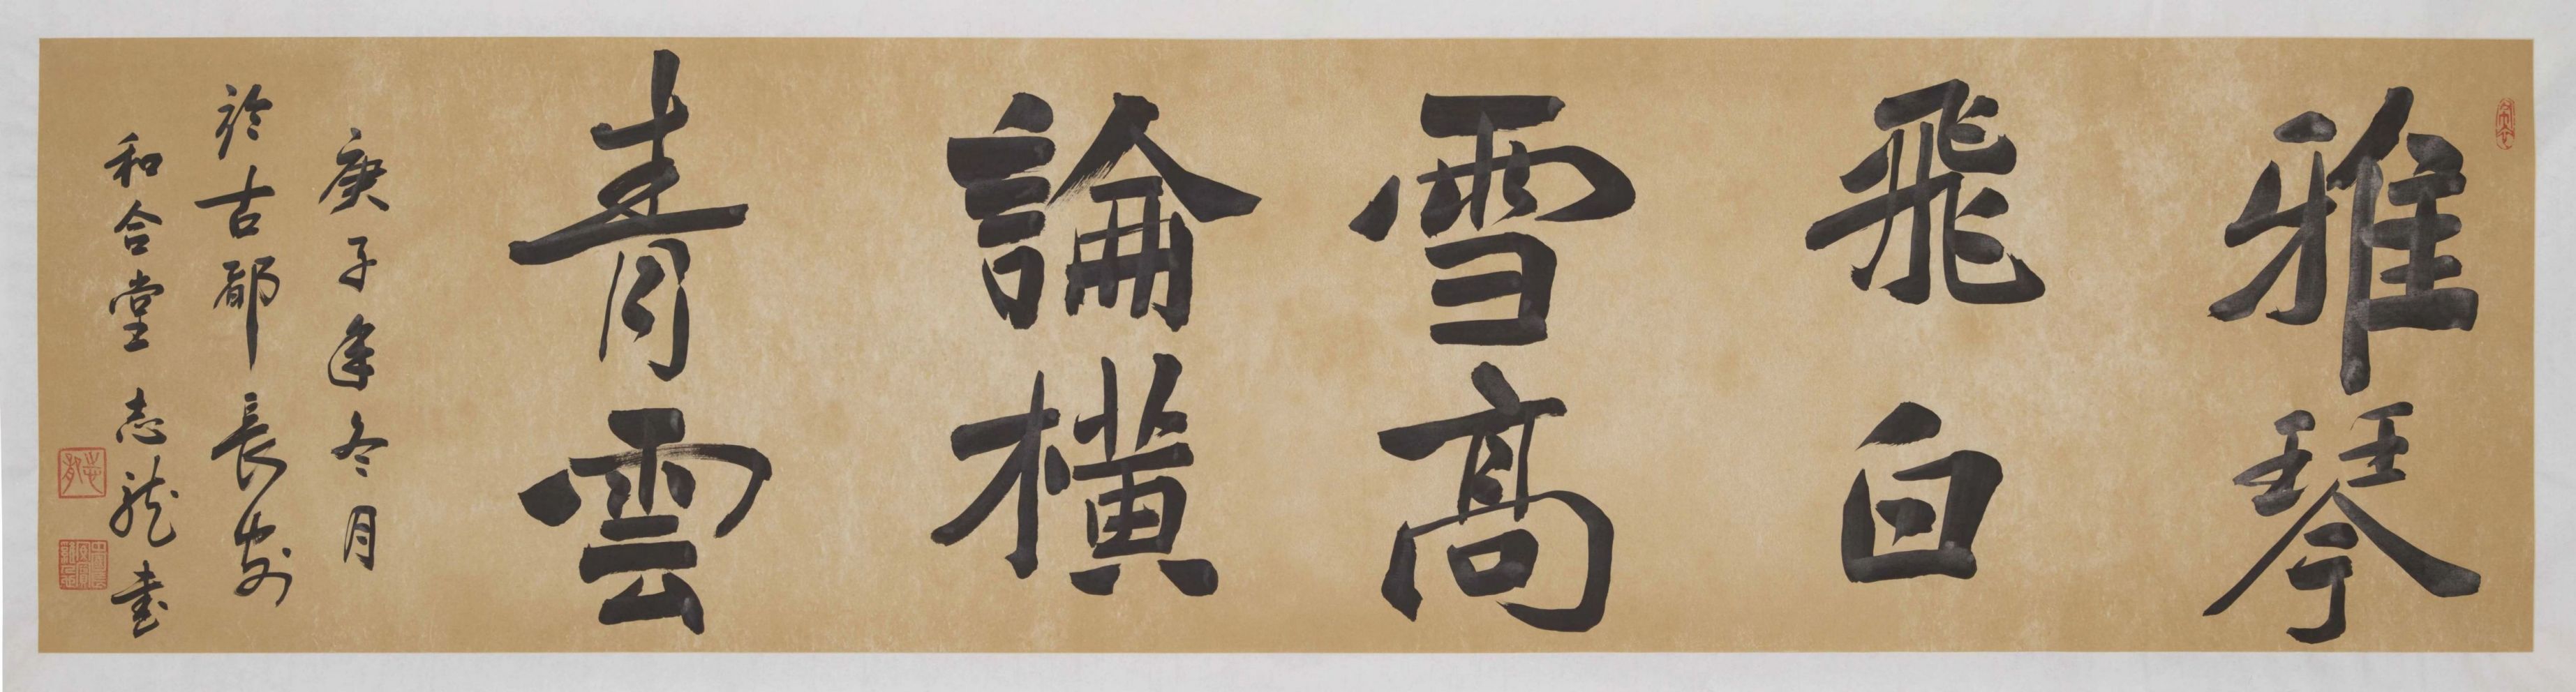 雅琴
飛白
雪高
論橫
青雲
庚子年冬月
於古都長安
和合堂志龍書